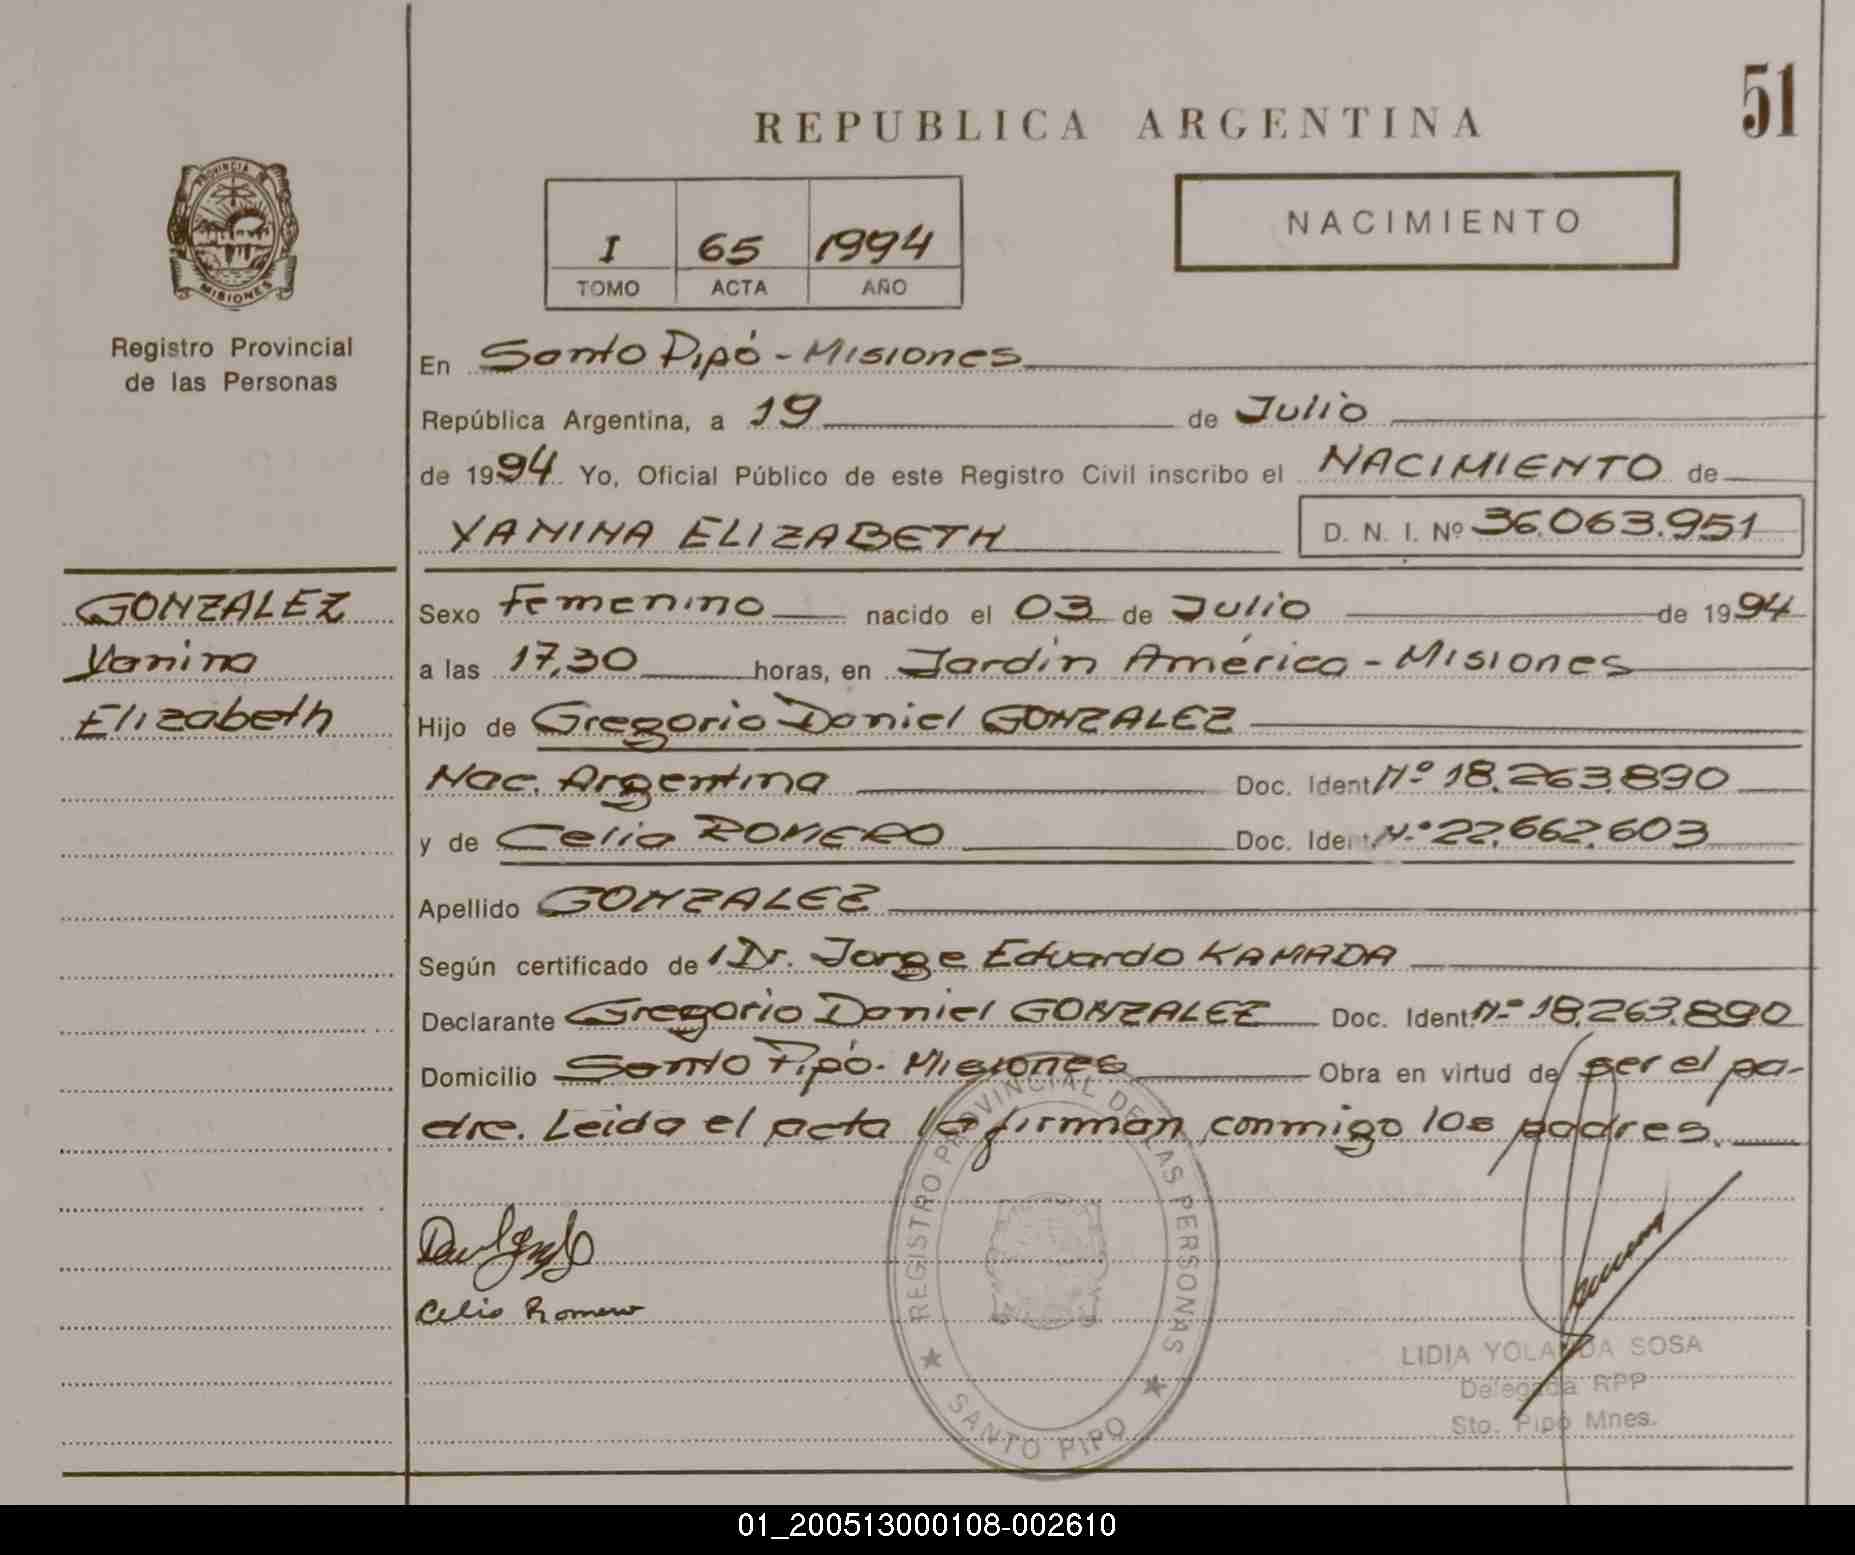 51
REPUBLICA ARGENTINA
PROVINCIA DE
MISIONES
Registro Provincial
de las Personas
NACIMIENTO
I 65 1994
TOMO ACTA AÑO
En Santo Pipó - Misiones
República Argentina, a 19 de Julio
de 1994 Yo, Oficial Público de este Registro Civil inscribo el NACIMIENTO de
YANINA ELIZABETH D. N. I. Nº 36.063.951
GONZALEZ
Yanina
Elizabeth
Sexo Femenino nacido el 03 de Julio de 1994
a las 17,30 horas, en Jardín América - Misiones
Hijo de Gregorio Daniel GONZALEZ
Nac. Argentina Doc. Ident. Nº 18.263.890
y de Celia ROMERO Doc. Ident. Nº 22.662.603
Apellido GONZALEZ
Según certificado de l Dr. Jorge Eduardo KAMADA
Declarante Gregorio Daniel GONZALEZ Doc. Ident. Nº 18.263.890
Domicilio Santo Pipó. Misiones Obra en virtud de ser el pa-
dre. Leida el acta la firman conmigo los padres.
Celia Romero
REGISTRO PROVINCIAL DE LAS PERSONAS
SANTO PIPO
LIDIA YOLANDA SOSA
Delegada RPP
Sto. Pipó Mnes.
01_200513000108-002610